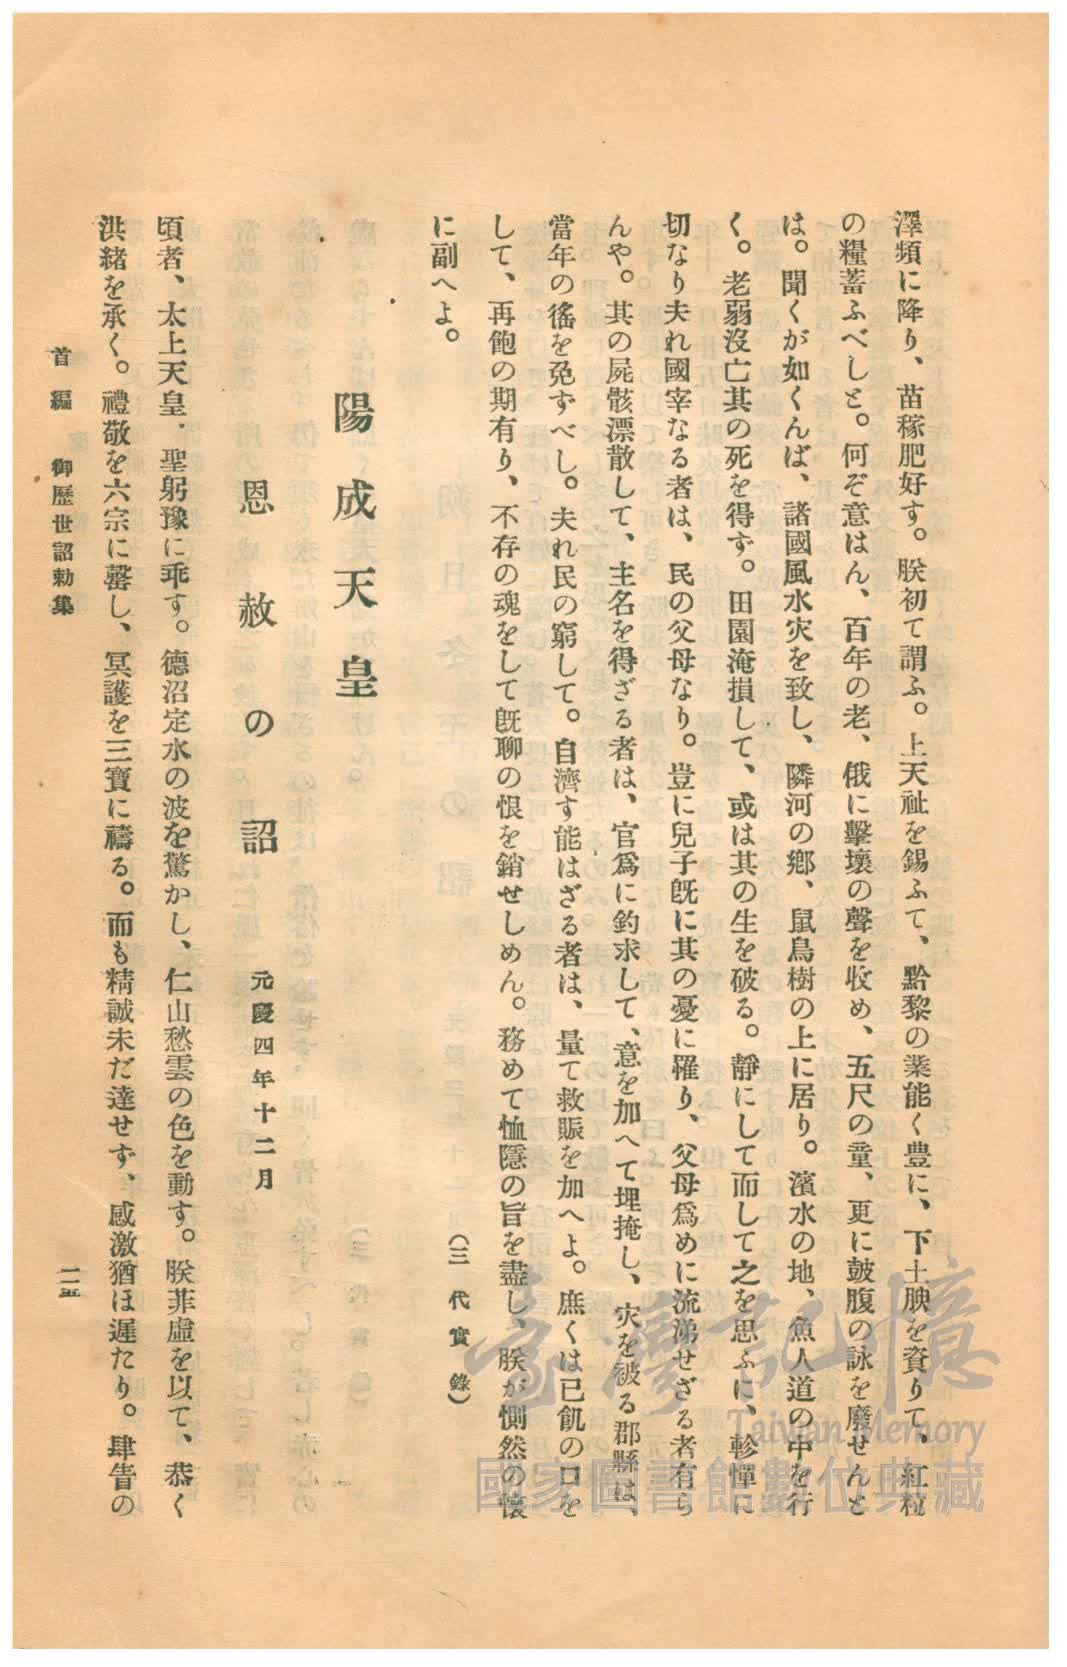 澤頻に降り、苗稼肥好す。朕初て謂ふ。上天祉を錫ふて、黔黎の業能く豊に、下土腴を資りて、紅粒
の糧蓄ふべしと。何ぞ意はん、百年の老、俄に擊壤の聲を收め、五尺の童、更に皷腹の詠を廢せんと
は。聞くが如くんば、諸國風水灾を致し、隣河の鄕、鼠鳥樹の上に居り。濱水の地、魚人道の中を行
く。老弱沒亡其の死を得ず。田園淹損して、或は其の生を破る。靜にして而して之を思ふに、軫憚に
切なり夫れ國宰なる者は、民の父母なり。豈に兒子旣に其の憂に罹り、父母爲めに流涕せざる者有ら
んや。其の屍骸漂散して、主名を得ざる者は、官爲に釣求して、意を加へて埋掩し、灾を被る郡縣は、
當年の徭を免ずべし。夫れ民の窮して。自濟す能はざる者は、量て救賑を加へよ。庶くは已飢の口を
して、再飽の期有り、不存の魂をして旣聊の恨を銷せしめん。務めて恤隱の旨を盡し、朕が惻然の懷
に副へよ。
(三代實錄)
陽成天皇
恩赦の詔
元慶四年十二月
頃者、太上天皇、聖躬豫に乖す。德沼定水の波を驚かし、仁山愁雲の色を動す。朕菲虛を以て、恭く
洪緒を承く。禮敬を六宗に罄し、冥護を三寶に禱る。而も精誠未だ達せず、感激猶ほ遲たり。肆眚の
首編 御歷世詔勅集
二五
臺灣記憶
Taiwan Memory
國家圖書館數位典藏